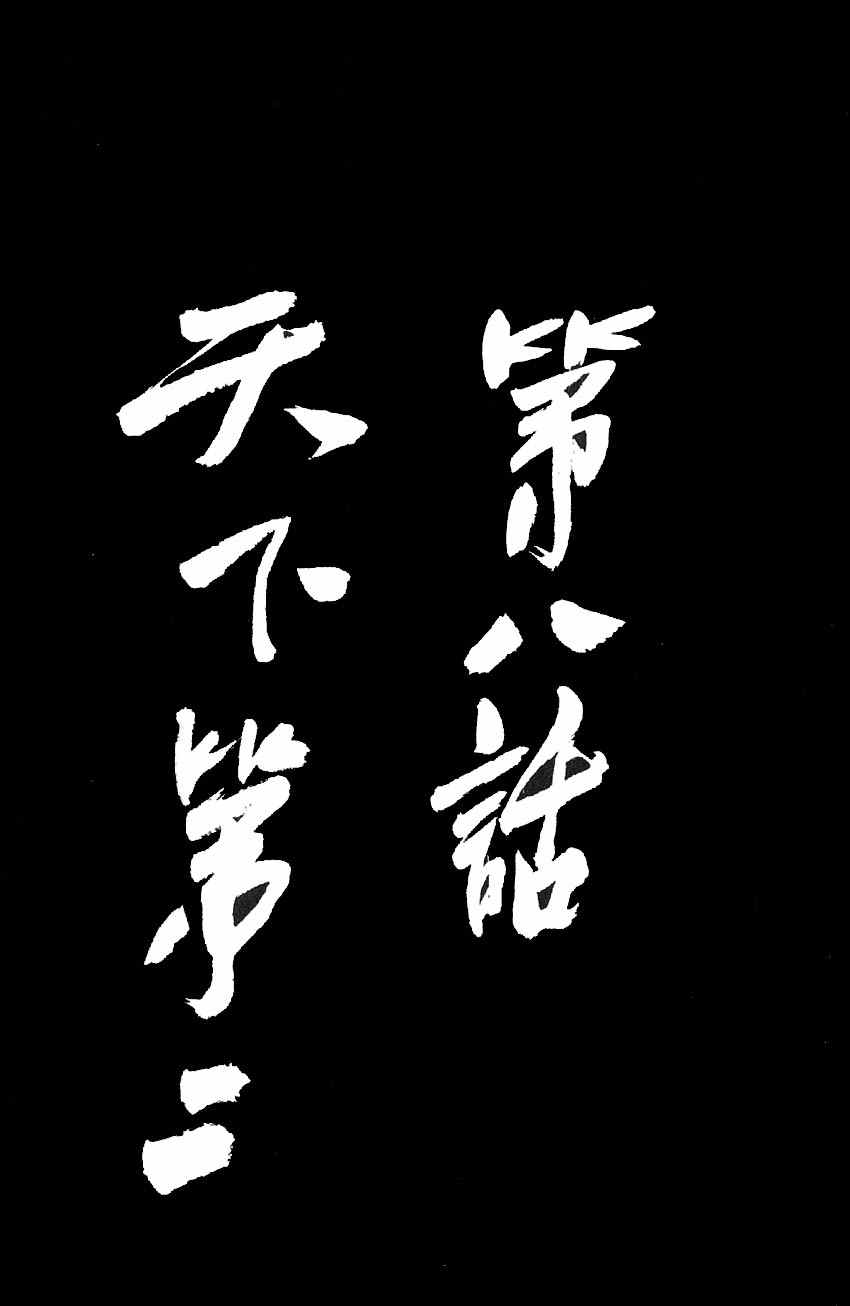 第八話
天下第二